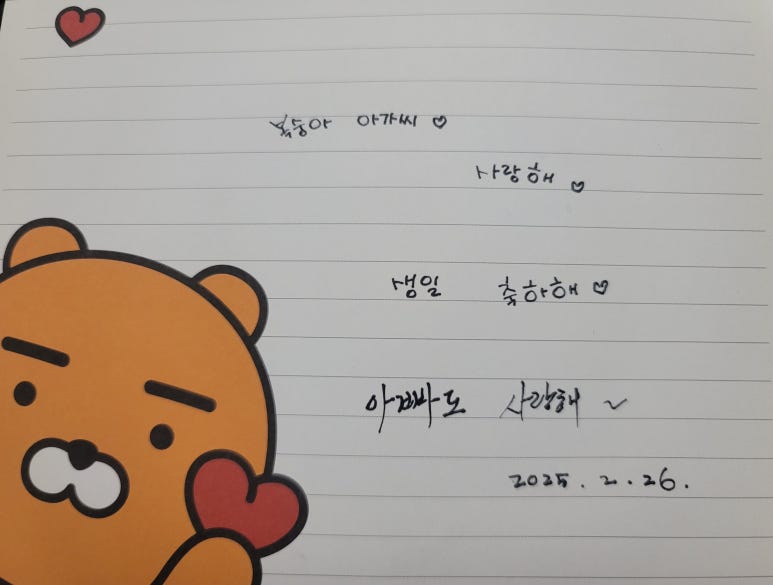 복둥아 아가씨 ♡
사랑해 ♡
생일 축하해 ♡
아빠도 사랑해 ~
2025. 2. 26.